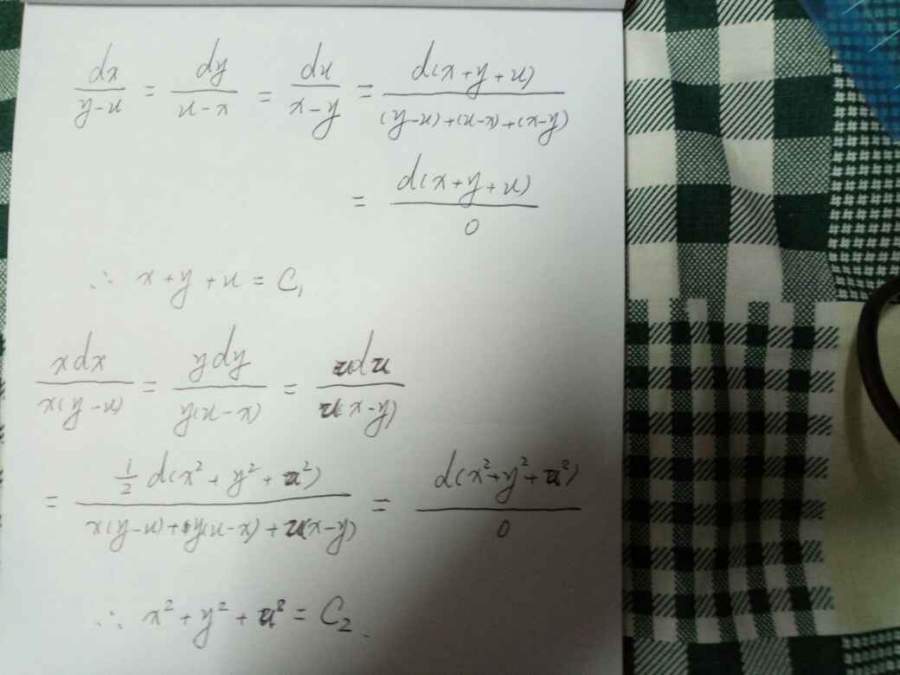 dx/(y-u) = dy/(u-x) = du/(x-y) = d(x+y+u)/((y-u)+(u-x)+(x-y))
= d(x+y+u)/0
∴ x+y+u = C₁
xdx/(x(y-u)) = ydy/(y(u-x)) = udu/(u(x-y))
= ½d(x²+y²+u²)/(x(y-u)+y(u-x)+u(x-y)) = d(x²+y²+u²)/0
∴ x²+y²+u² = C₂.